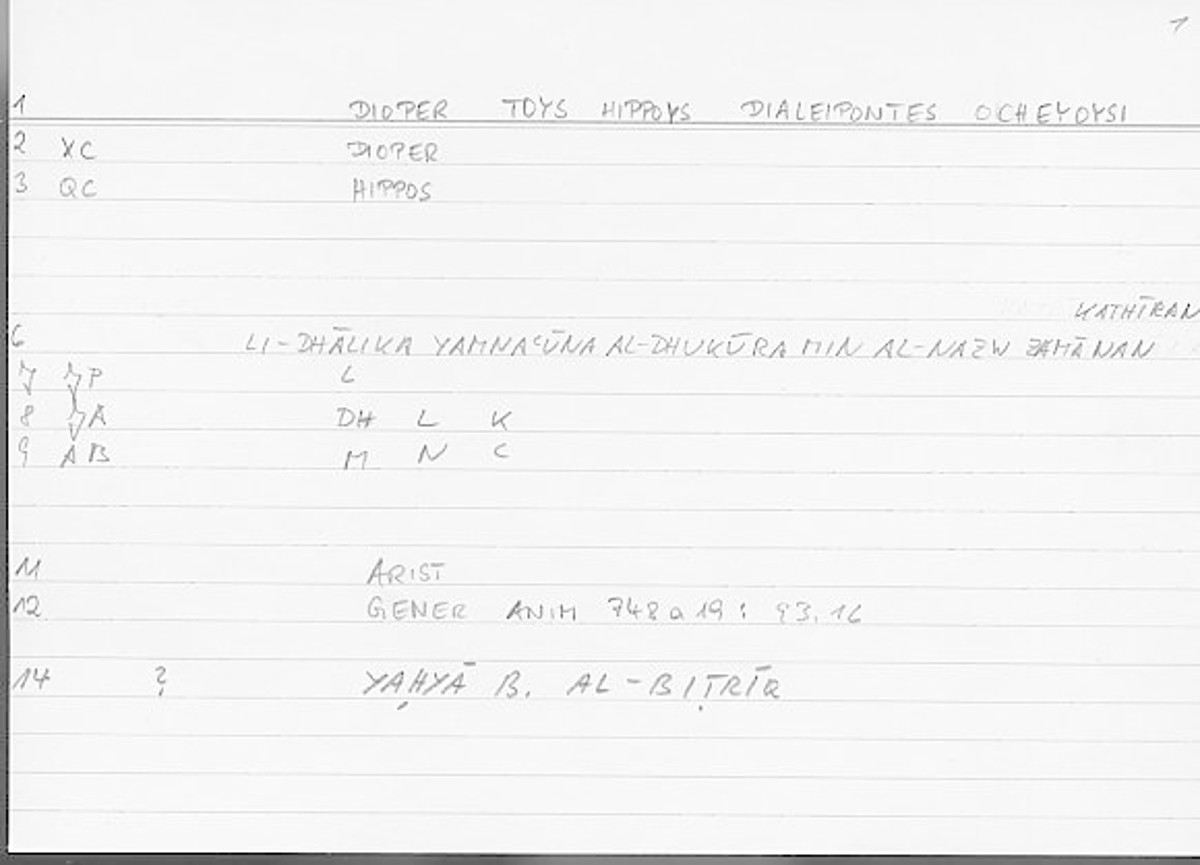 1
1 DIOPER TOYS HIPPOYS DIALEIPONTES OCHEYOYSI
2 XC DIOPER
3 QC HIPPOS
KATHĪRAN
6 LI-DHĀLIKA YAMNAʿŪNA AL-DHUKŪRA MIN AL-NAZW ZAMĀNAN
7 P L
8 A DH L K
9 AB M N C
11 ARIST
12 GENER ANIM 748a19 : 93.16
14 ? YAḤYĀ B. AL-BIṬRĪQ